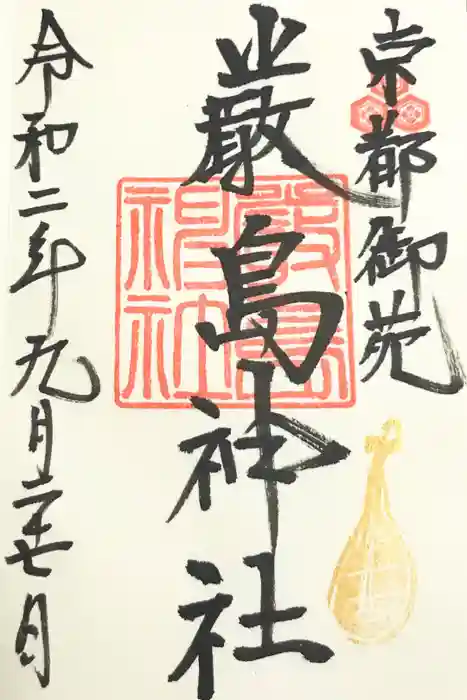 京都御苑
嚴島神社
嚴島神社
令和二年九月二十七日